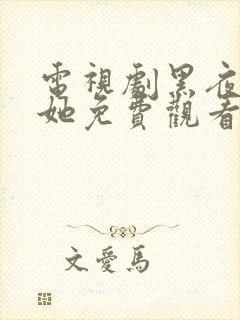 電視劇黑夜
她免費觀看
文愛馬